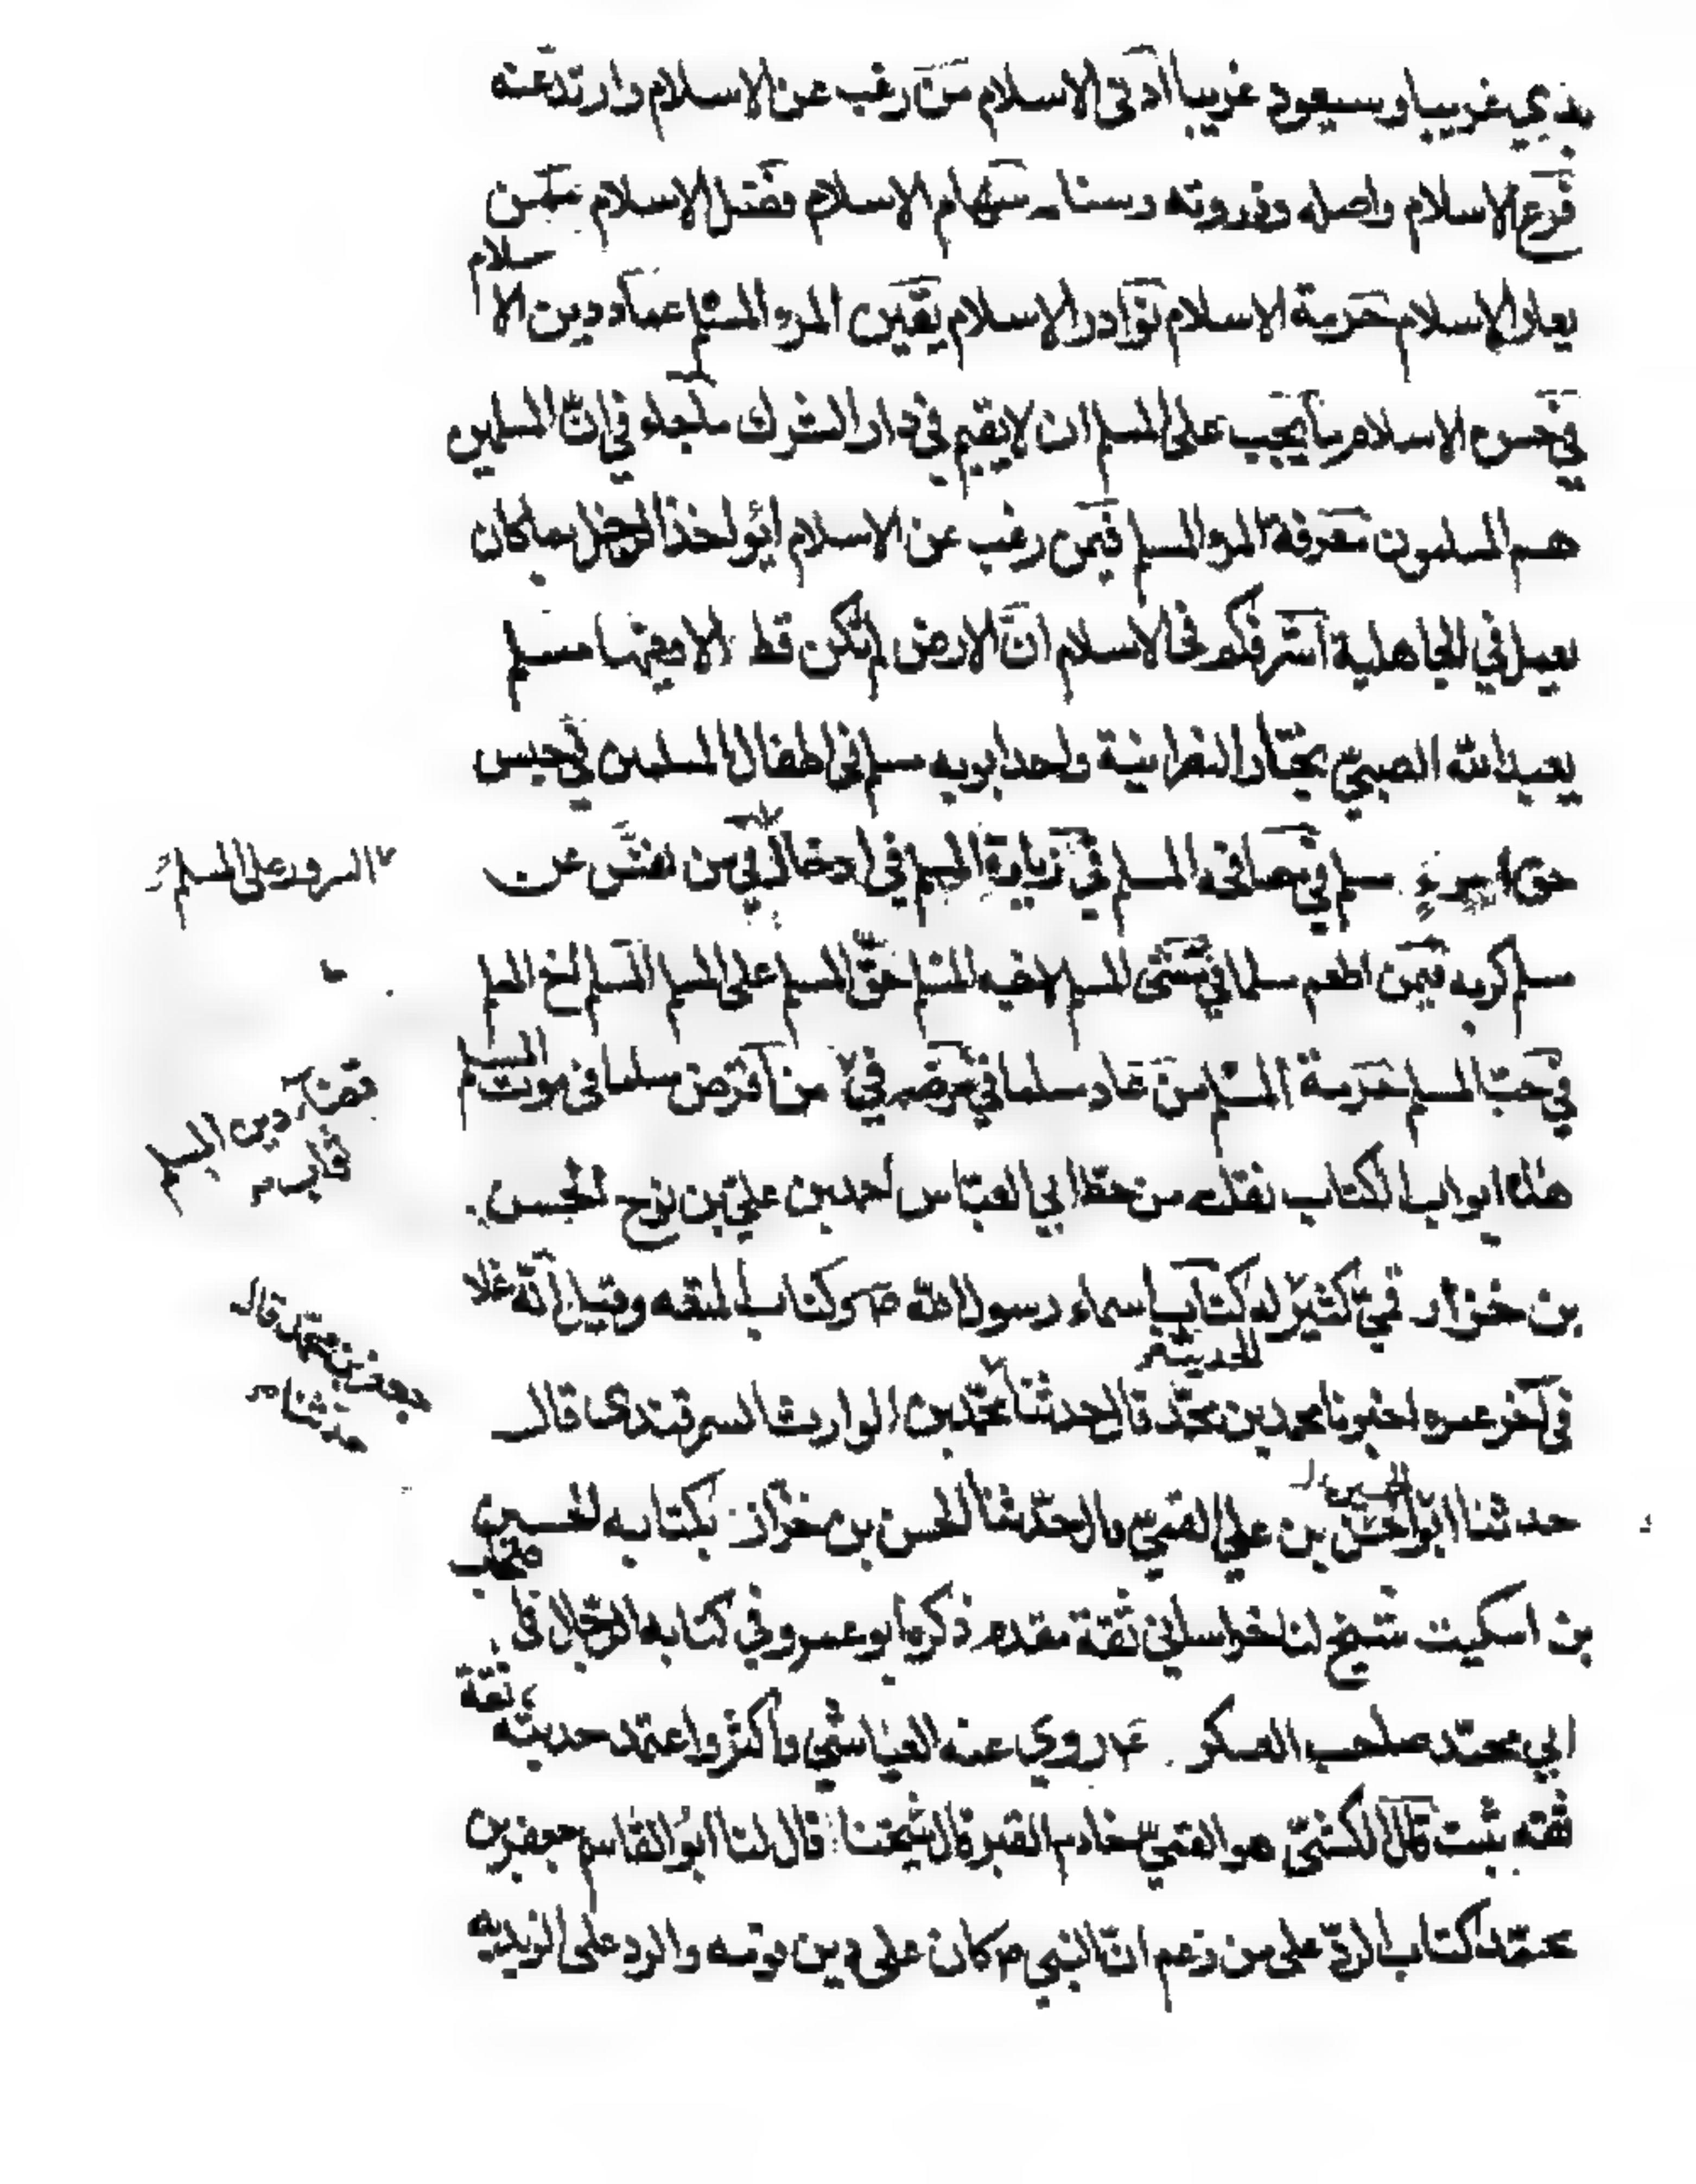 بدي غريبا وسيعود غريبا ادنى الاسلام من رغب عن الاسلام وارتد عنه
فرع الاسلام واصله وذروته وسنا سهام الاسلام فضل الاسلام
الاسلام حرمة الاسلام نوادر الاسلام يقين المرو المسلم عماد دين الا
سلام
في الاسلام ما يجب على المسلم ان لا يقيم في دار الشرك ما جاء في ان المسلمين
هم المسلمون معرفة المرو المسلم فيمن رغب عن الاسلام ايؤاخذ الرجل بما كان
يعمل في الجاهلية اشرفكم في الاسلام ان الارض لم تكن قط الا وفيها مسلم
يعبد الله الصبي يختار النصرانية واحد ابويه مسلم في اطفال المسلمين في حبس
حق مسلم في مصافحة المسلم في زيارة المسلم في ادخال من نفس عن
السرور على المسلم
مسلم كربه فيمن اطعم مسلما في المسلم لاخيه المسلم حق المسلم على المسلم المسلم اخ المسلم
في حب المسلم حرمة المسلم من عاد مسلما في مرضه في من اقرض مسلما في موت المسلم
قضاء دين المسلم
ثوابه
هذه ابواب الكتاب نقلته من خط ابي العباس احمد بن علي بن نوح الحسن
بن خرزاد قمي كثير الحديث له كتاب اسماء رسول الله ص وكتاب المتعه وقيل انه غلا
في آخر عمره اخبرنا محمد بن محمد قال حدثنا محمد بن الوارث السمرقندي قال
جعفر بن محمد قال
حدثنا
حدثنا ابو الحسين بن علي القمي قال حدثنا الحسن بن خرزاذ بكتابه الحسين
بن اسكيت شيخ لنا خراساني ثقة مقدم ذكره ابو عمرو في كتابه الرجال في
ابي محمد صاحب العسكر ع روى عنه العياشي واكثر واعتمد حديثه ثقة
ثقه ثبت قال الكشي هو القمي خادم القبر قال شيخنا قال لنا ابو القاسم جعفر بن
محمد كتاب الرد على من زعم ان النبي ص كان على دين قومه والرد على الزيديه